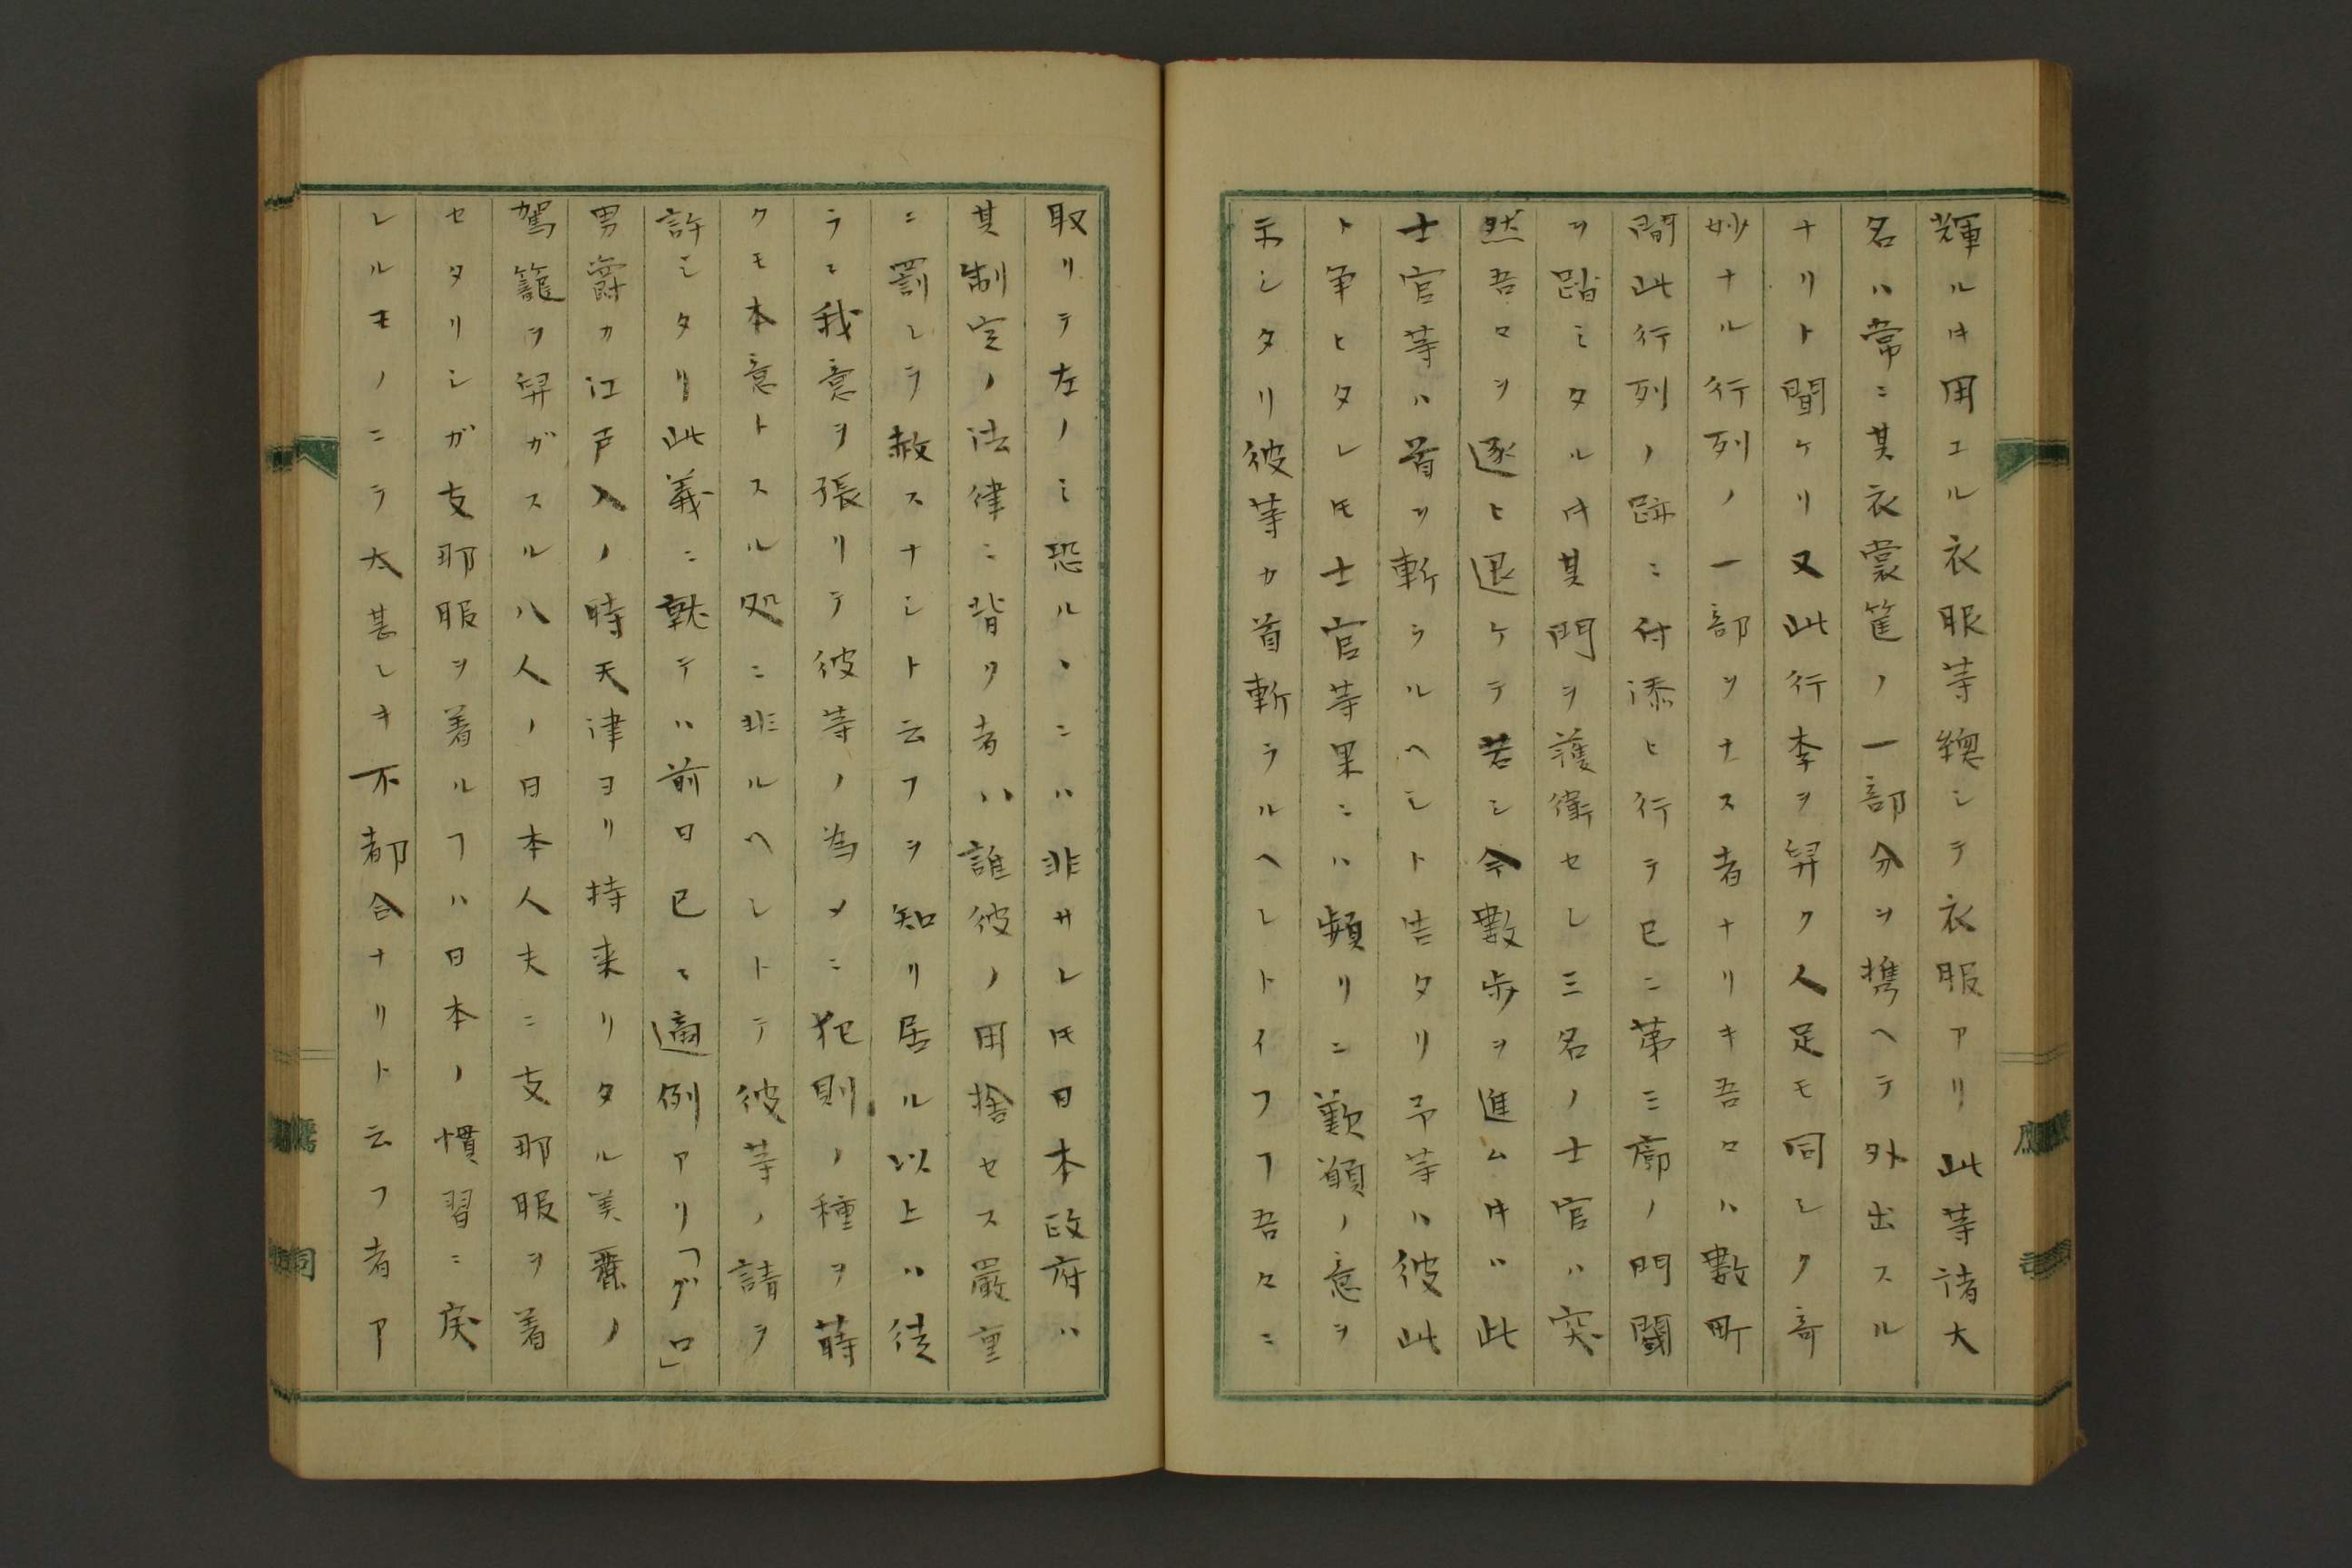 輝ルキ用エル衣服等総シテ衣服アリ此等諸大
名ハ常ニ其衣裳筐ノ一部分ヲ携ヘテ外出スル
ナリト聞ケリ又此行李ヲ舁ク人足モ同シク奇
妙ナル行列ノ一部ヲナス者ナリキ吾々ハ數町
間此行列ノ跡ニ付添ヒ行テ已ニ第三廓ノ門閾
ヲ踏ミタル𪜈其門ヲ護衛セシ三名ノ士官ハ突
然吾々ヲ逐ヒ退ケテ若シ今數歩ヲ進ムキハ此
士官等ハ首ヲ斬ラルヘシト告タリ予等ハ彼此
ト争ヒタレ𪜈士官等果ニハ頻リニ歎願ノ意ヲ
示シタリ彼等カ首斬ラルヘシトイフヿ吾々ニ
取リテ左ノミ恐ルヽニハ非サレ𪜈日本政府ハ
其制定ノ法律ニ背ク者ハ誰彼ノ用捨セス嚴重
ニ罰シテ赦スナシト云フヿヲ知リ居ル以上ハ徒
ラニ我意ヲ張リテ彼等ノ為メニ犯則ノ種ヲ蒔
クモ本意トスル処ニ非ルヘシトテ彼等ノ請ヲ
許シタリ此義ニ就テハ前日已ニ適例アリ「グロ」
男爵カ江戸入ノ時天津ヨリ持来リタル美麗ノ
駕籠ヲ舁ガスル八人ノ日本人夫ニ支耶服ヲ着
セタリシガ支耶服ヲ着ルヿハ日本ノ慣習ニ戻
レルモノニテ太甚シキ不都合ナリト云フ者ア